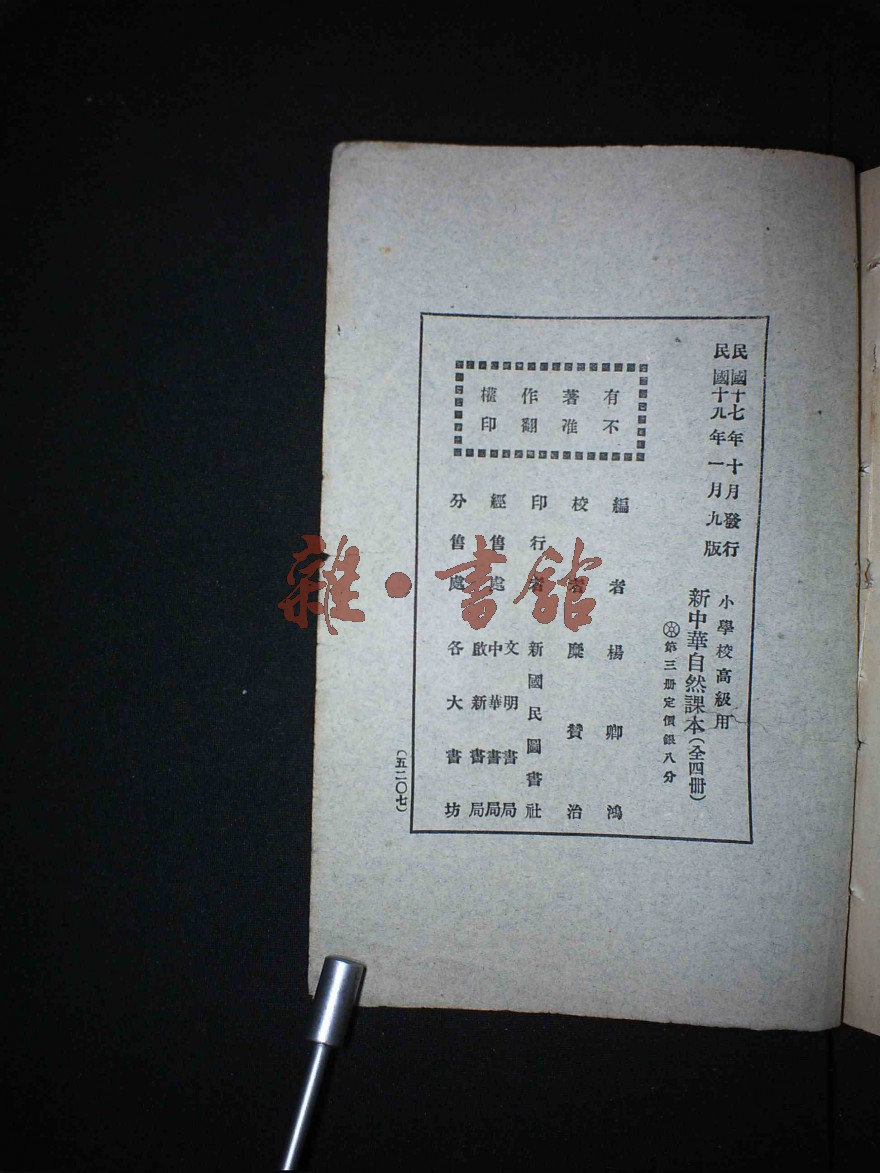 民國十七年十月發行
民國十九年一月九版
小學校高級用
新中華自然課本(全四冊)
第三冊定價銀八分
有不
著准
作翻
權印
編者 楊卿鴻
校者 糜贊治
印行者 新國民圖書社
經售處 文明書局
中華書局
啟新書局
分售處 各大書坊
(五二〇七)
雜·書館